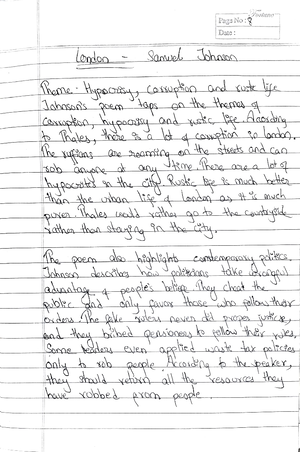 Page No: 8
Date:
London - Samuel Johnson
Theme:- Hypocrisy, corruption and rustic life
Johnson's poem taps on the themes of
corruption, hypocrisy and rustic life. According
to Thales, there is a lot of corruption in london.
The ruffians are roaming on the streets and can
rob anyone at any time. There are a lot of
hypocrites in the city. Rustic life is much better
than the urban life of London as it is much
purer. Thales would rather go to the countryside
rather than staying in the city.
The poem also highlights contemporary politics.
Johnson describes how politicians take
advantage of people's beliefs. They cheat the
public and only favor those who follow their
orders. The fake rulers never did proper justice,
and they bribed pensioners to follow their rules.
Some leaders even applied waste tax policies
only to rob people. According to the speaker,
they should return all the resources they
have robbed from people.